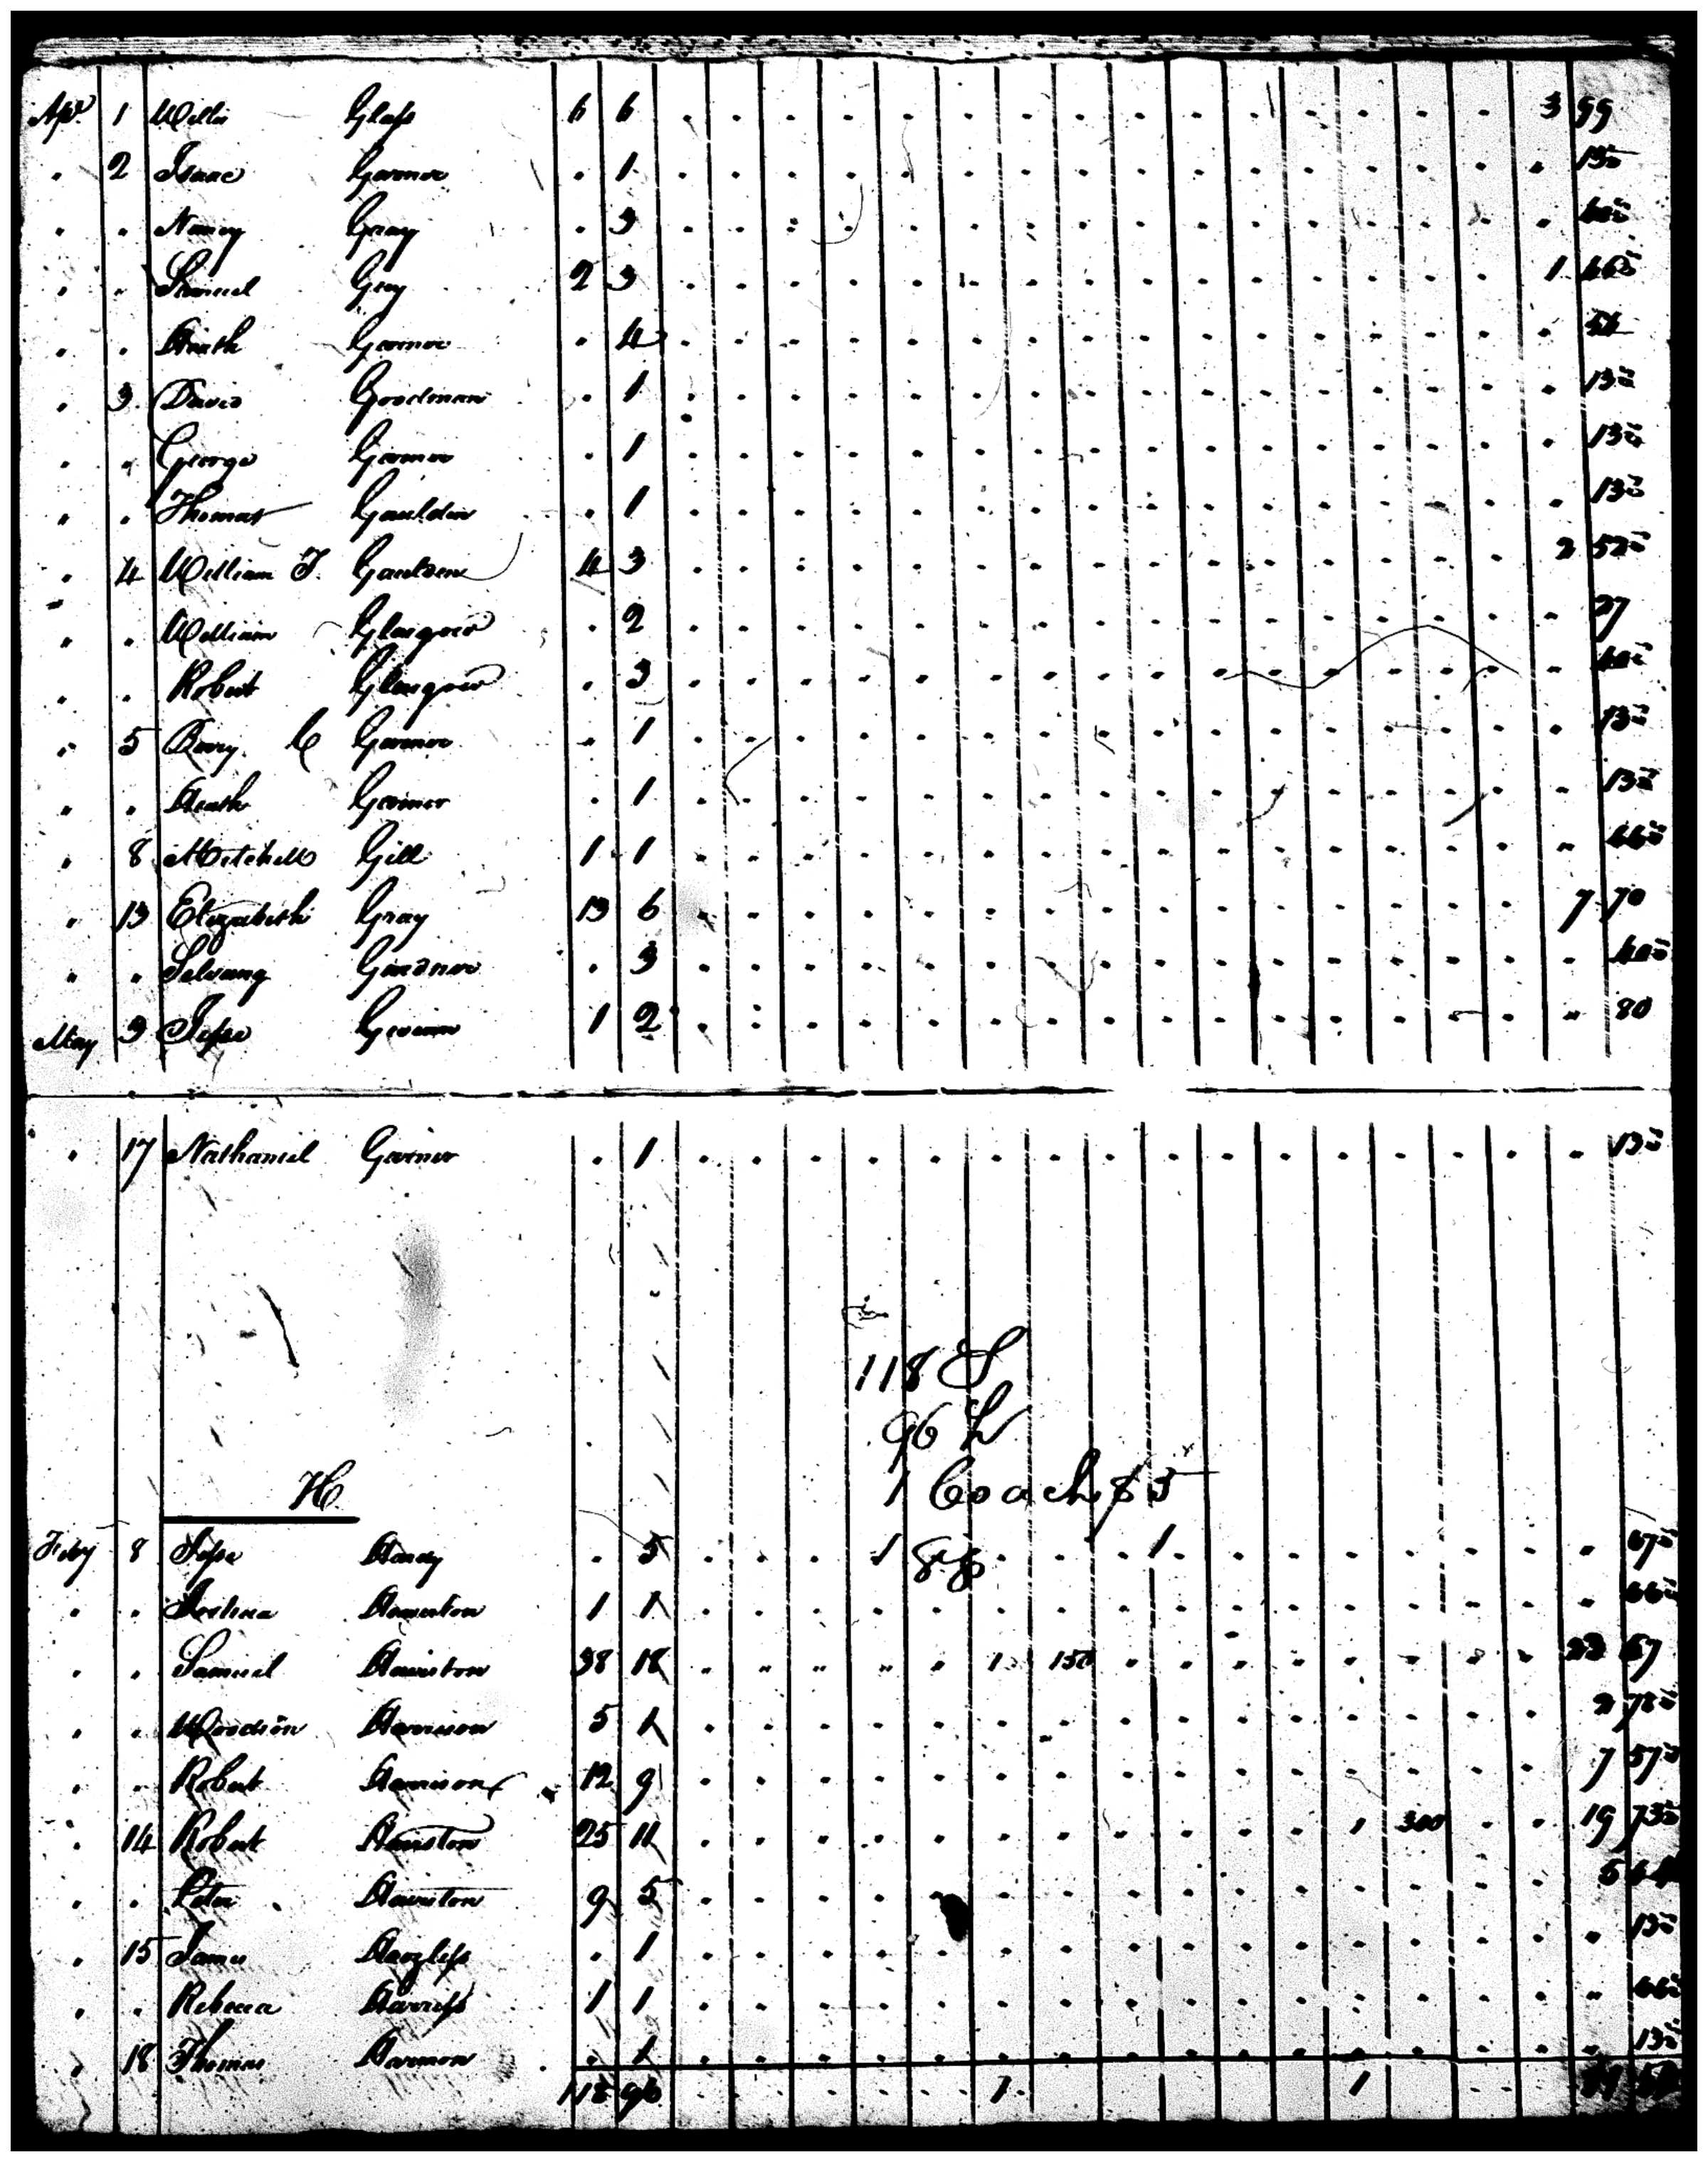 Apl. 1 Willis Glass 6 6 3 99
" 2 Isaac Garner . 1 13 5
" " Nancy Gray . 3 40 5
" " Samuel Gray 2 3 1 46 5
" " Heath Garner . 4 54
" 3 David Goodman . 1 13 5
" " George Garner . 1 13 5
" " Thomas Gauldin . 1 13 5
" 4 William T. Gaulden 4 3 2 52 5
" " William Glasgow . 2 27
" " Robert Glasgow . 3 40 5
" 5 Berry C Garner . 1 13 5
" " Heath Garner . 1 13 5
" 8 Mitchell Gill 1 1 66 5
" 13 Elizabeth Gray 13 6 7 70
" " Selvany Gardner . 3 40 5
May 3 Jesse Gwinn 1 2 80
" 17 Nathaniel Garner . 1 13 5
118 S
96 h
1 Coach $5
H
Feby 8 Jesse Hardy . 5 1 88 1 67 5
" " Joshua Hairston 1 1 66 5
" " Samuel Hairston 38 18 1 150 67
" " Woodson Harrison 5 1 2 78 5
" " Robert Harrison 12 9 7 57 5
" 14 Robert Hairston 25 11 1 300 19 73 5
" " Peter Hairston 9 5 5
" 15 James . 1 13 5
" " Rebecca Harriss 1 1 66 5
" 18 Thomas Harmon . 1 13 5
118 96 1 1